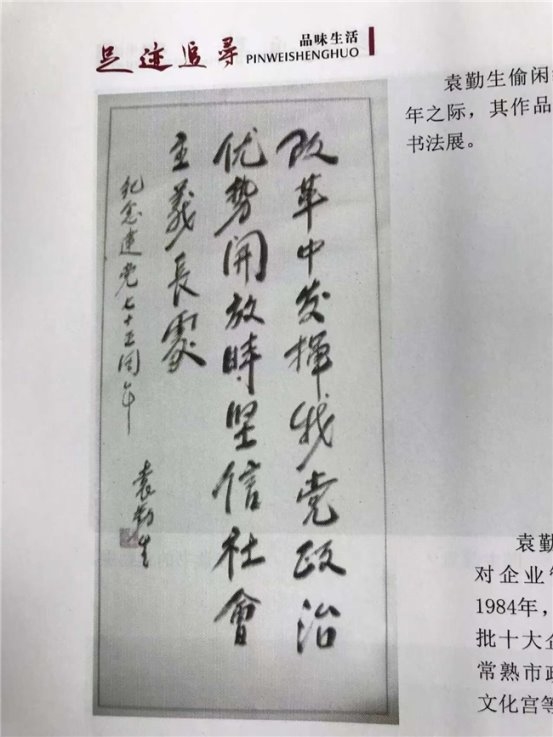 足迹追寻
品味生活
PINWEISHENGHUO
改革中发揮我党政治
优势開放時坚信社會
主義長處
纪念建党七十五周年
袁勤生
袁勤生偷闲
年之际，其作品
书法展。
袁勤
对企业
1984年，
批十大企
常熟市政
文化宫等